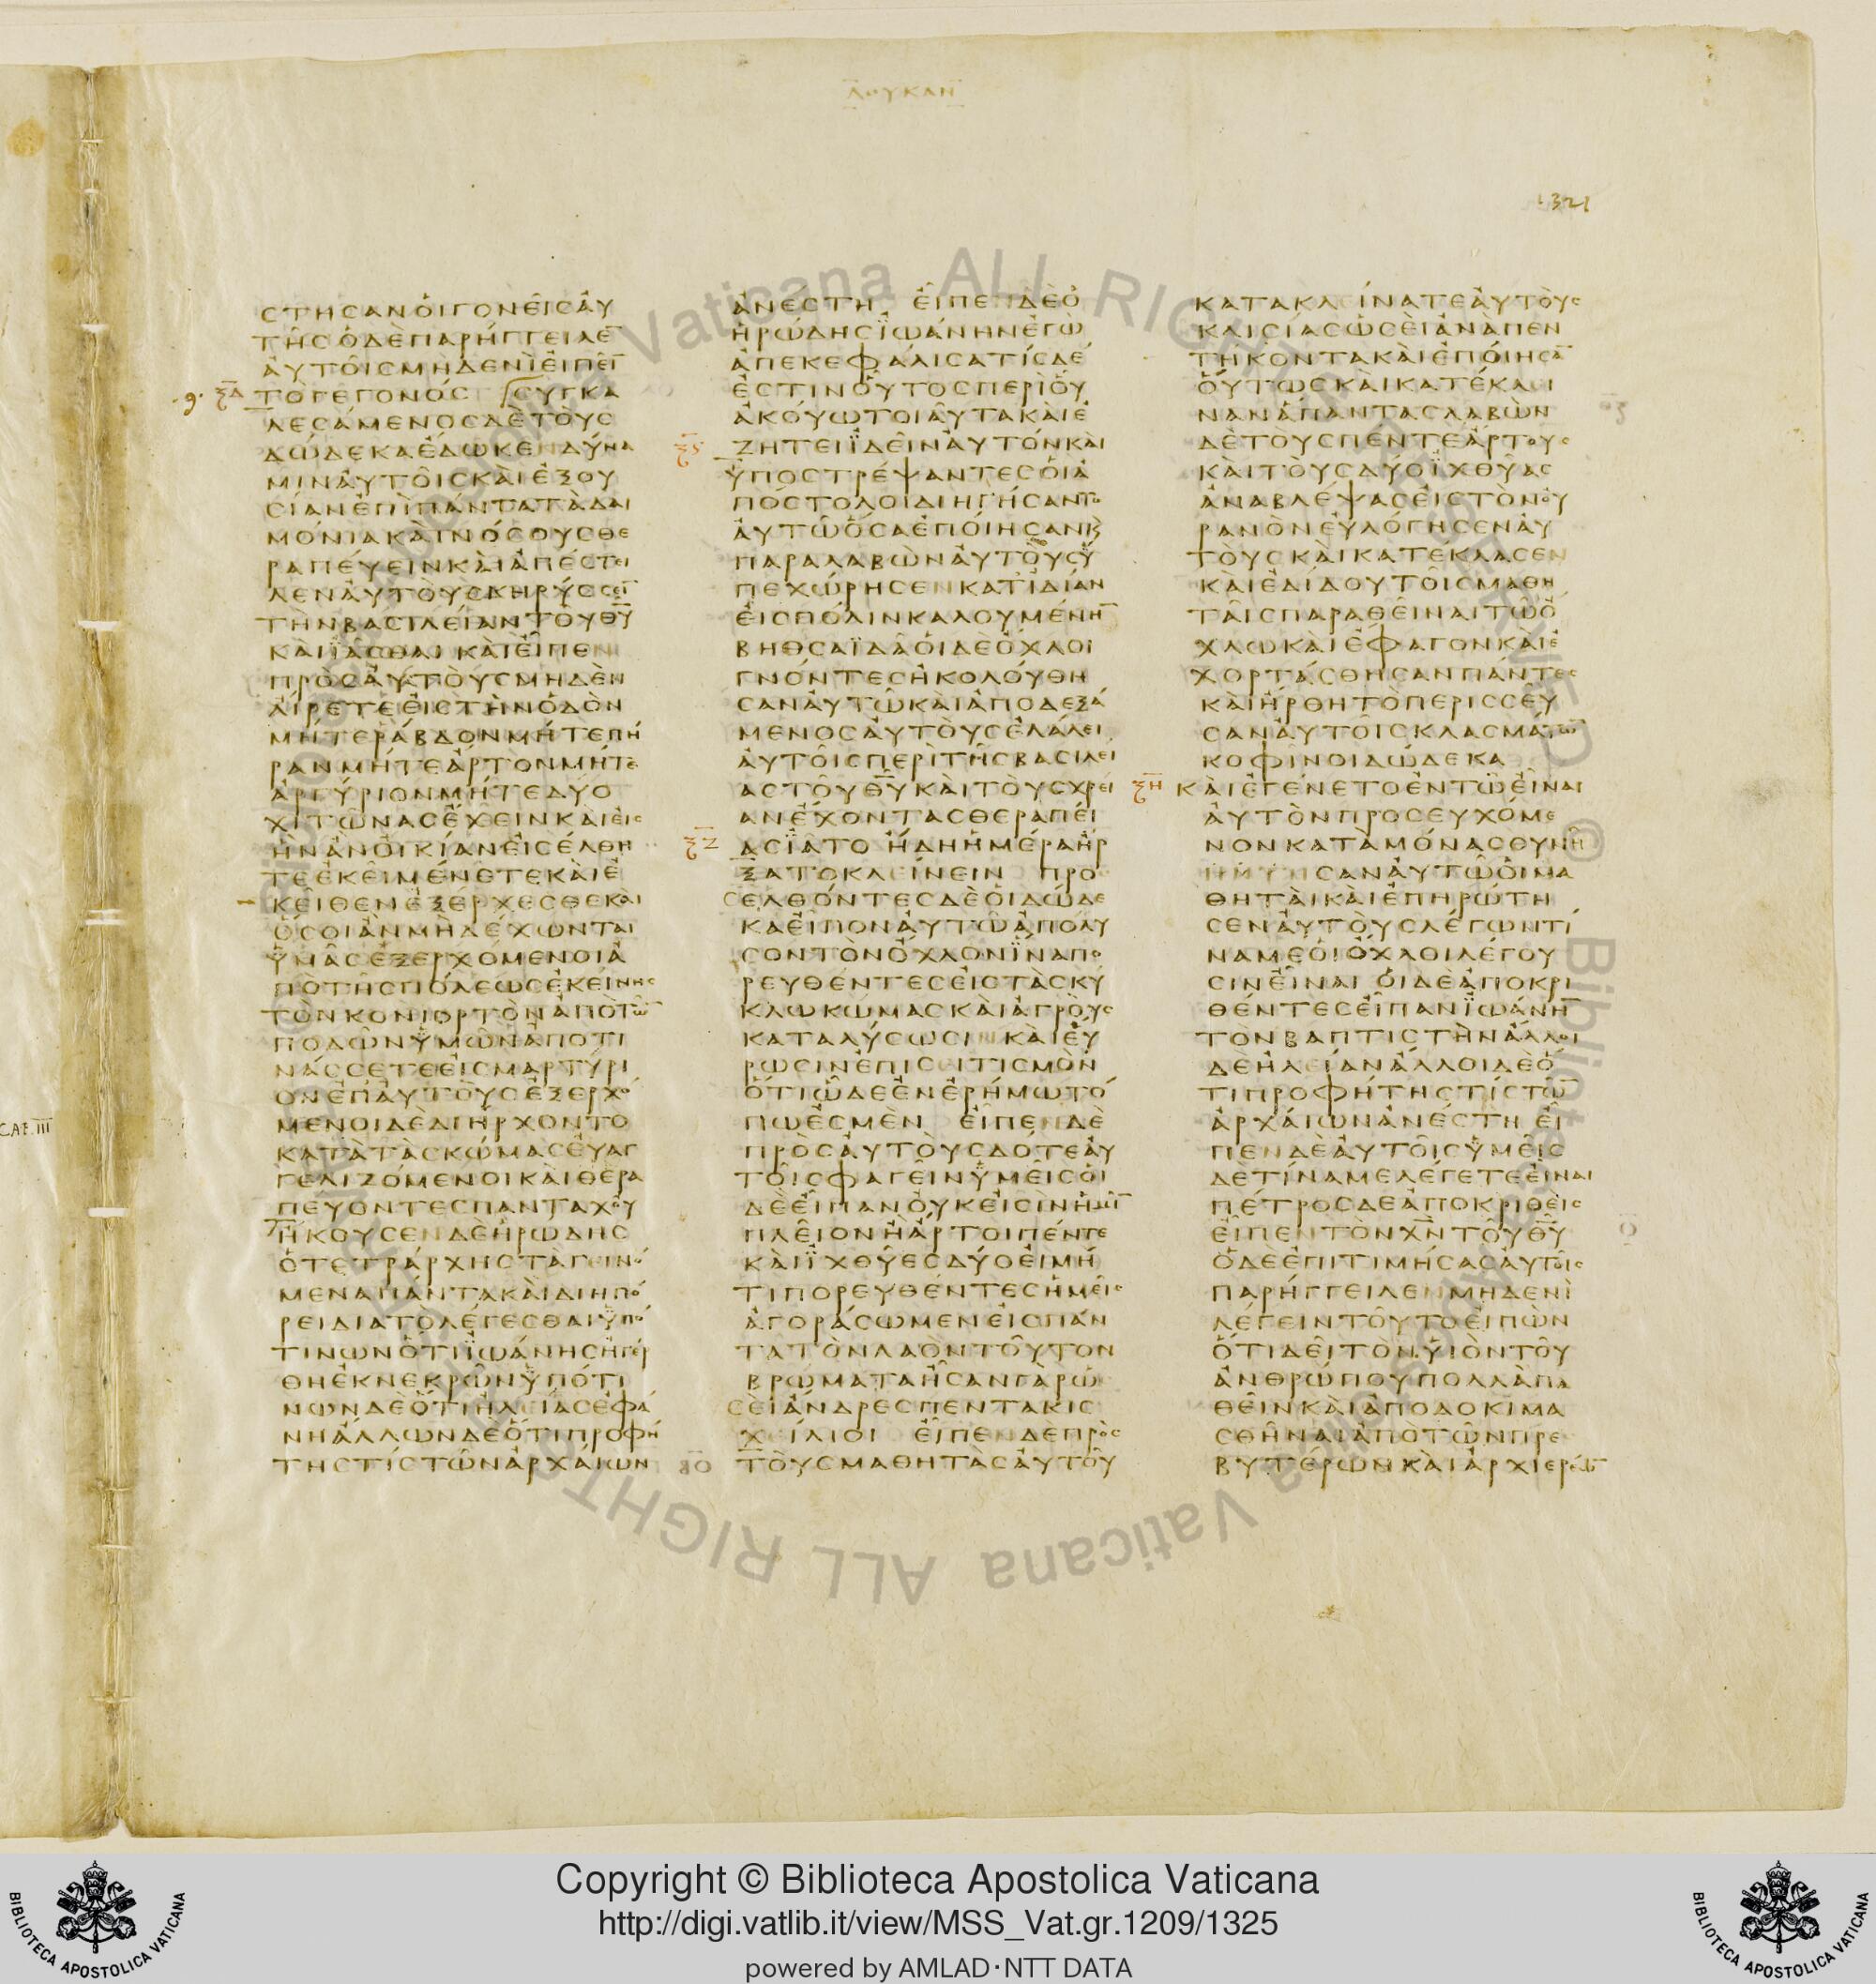 ΛΟΥΚΑΝ
1321
ϹΤΗϹΑΝΟΙΓΟΝΕΙϹΑΥ
ΤΗϹΟΔΕΠΑΡΗΓΓΕΙΛΕ̅
ΑΥΤΟΙϹΜΗΔΕΝΙΕΙΠΕΙ̅
ΤΟΓΕΓΟΝΟϹ ϹΥΓΚΑ
ΛΕϹΑΜΕΝΟϹΔΕΤΟΥϹ
ΔΩΔΕΚΑΕΔΩΚΕΝΔΥΝΑ
ΜΙΝΑΥΤΟΙϹΚΑΙΕΞΟΥ
ϹΙΑΝΕΠΙΠΑΝΤΑΤΑΔΑΙ
ΜΟΝΙΑΚΑΙΝΟϹΟΥϹΘΕ
ΡΑΠΕΥΕΙΝΚΑΙΑΠΕϹΤΕΙ
ΛΕΝΑΥΤΟΥϹΚΗΡΥϹϹΕΙ̅
ΤΗΝΒΑϹΙΛΕΙΑΝΤΟΥΘ̅Υ̅
ΚΑΙΙΑϹΘΑΙ ΚΑΙΕΙΠΕΝ
ΠΡΟϹΑΥΤΟΥϹΜΗΔΕΝ
ΑΙΡΕΤΕΕΙϹΤΗΝΟΔΟΝ
ΜΗΤΕΡΑΒΔΟΝΜΗΤΕΠΗ
ΡΑΝΜΗΤΕΑΡΤΟΝΜΗΤΕ
ΑΡΓΥΡΙΟΝΜΗΤΕΔΥΟ
ΧΙΤΩΝΑϹΕΧΕΙΝΚΑΙΕΙϹ
ΗΝΑΝΟΙΚΙΑΝΕΙϹΕΛΘΗ
ΤΕΕΚΕΙΜΕΝΕΤΕΚΑΙΕ
ΚΕΙΘΕΝΕΞΕΡΧΕϹΘΕΚΑΙ
ΟϹΟΙΑΝΜΗΔΕΧΩΝΤΑΙ
ΥΜΑϹΕΞΕΡΧΟΜΕΝΟΙΑ
ΠΟΤΗϹΠΟΛΕΩϹΕΚΕΙΝΗϹ
ΤΟΝΚΟΝΙΟΡΤΟΝΑΠΟΤΩ̅
ΠΟΔΩΝΥΜΩΝΑΠΟΤΙ
ΝΑϹϹΕΤΕΕΙϹΜΑΡΤΥΡΙ
ΟΝΕΠΑΥΤΟΥϹΕΞΕΡΧΟ
ΜΕΝΟΙΔΕΔΙΗΡΧΟΝΤΟ
ΚΑΤΑΤΑϹΚΩΜΑϹΕΥΑΓ
ΓΕΛΙΖΟΜΕΝΟΙΚΑΙΘΕΡΑ
ΠΕΥΟΝΤΕϹΠΑΝΤΑΧΟΥ
ΗΚΟΥϹΕΝΔΕΗΡΩΔΗϹ
ΟΤΕΤΡΑΡΧΗϹΤΑΓΕΙΝΟ
ΜΕΝΑΠΑΝΤΑΚΑΙΔΙΗΠΟ
ΡΕΙΔΙΑΤΟΛΕΓΕϹΘΑΙΥΠΟ
ΤΙΝΩΝΟΤΙΪΩΑΝΗϹΗΓΕΡ
ΘΗΕΚΝΕΚΡΩΝΥΠΟΤΙ
ΝΩΝΔΕΟΤΙΗΛΕΙΑϹΕΦΑ
ΝΗΑΛΛΩΝΔΕΟΤΙΠΡΟΦΗ
ΤΗϹΤΙϹΤΩΝΑΡΧΑΙΩΝ
ΑΝΕϹΤΗ ΕΙΠΕΝΔΕΟ
ΗΡΩΔΗϹΪΩΑΝΗΝΕΓΩ
ΑΠΕΚΕΦΑΛΙϹΑΤΙϹΔΕ
ΕϹΤΙΝΟΥΤΟϹΠΕΡΙΟΥ
ΑΚΟΥΩΤΟΙΑΥΤΑΚΑΙΕ
ΖΗΤΕΙΪΔΕΙΝΑΥΤΟΝΚΑΙ
ΥΠΟϹΤΡΕΨΑΝΤΕϹΟΙΑ
ΠΟϹΤΟΛΟΙΔΙΗΓΗϹΑΝΤΟ
ΑΥΤΩΟϹΑΕΠΟΙΗϹΑΝΚ
ΠΑΡΑΛΑΒΩΝΑΥΤΟΥϹΥ
ΠΕΧΩΡΗϹΕΝΚΑΤΙΔΙΑΝ
ΕΙϹΠΟΛΙΝΚΑΛΟΥΜΕΝΗ̅
ΒΗΘϹΑΪΔΑΟΙΔΕΟΧΛΟΙ
ΓΝΟΝΤΕϹΗΚΟΛΟΥΘΗ
ϹΑΝΑΥΤΩΚΑΙΑΠΟΔΕΞΑ
ΜΕΝΟϹΑΥΤΟΥϹΕΛΑΛΕΙ
ΑΥΤΟΙϹΠΕΡΙΤΗϹΒΑϹΙΛΕΙ
ΑϹΤΟΥΘ̅Υ̅ΚΑΙΤΟΥϹΧΡΕΙ
ΑΝΕΧΟΝΤΑϹΘΕΡΑΠΕΙ
ΑϹΪΑΤΟ ΗΔΗΗΜΕΡΑΗΡ
ΞΑΤΟΚΛΕΙΝΕΙΝ ΠΡΟ
ϹΕΛΘΟΝΤΕϹΔΕΟΙΔΩΔΕ
ΚΑΕΙΠΟΝΑΥΤΩΑΠΟΛΥ
ϹΟΝΤΟΝΟΧΛΟΝΪΝΑΠΟ
ΡΕΥΘΕΝΤΕϹΕΙϹΤΑϹΚΥ
ΚΛΩΚΩΜΑϹΚΑΙΑΓΡΟΥϹ
ΚΑΤΑΛΥϹΩϹΙΝΚΑΙΕΥ
ΡΩϹΙΝΕΠΙϹΕΙΤΙϹΜΟΝ
ΟΤΙΩΔΕΕΝΕΡΗΜΩΤΟ
ΠΩΕϹΜΕΝ ΕΙΠΕΝΔΕ
ΠΡΟϹΑΥΤΟΥϹΔΟΤΕΑΥ
ΤΟΙϹΦΑΓΕΙΝΥΜΕΙϹΟΙ
ΔΕΕΙΠΑΝΟΥΚΕΙϹΙΝΗΜΙ̅
ΠΛΕΙΟΝΗΑΡΤΟΙΠΕΝΤΕ
ΚΑΙΪΧΘΥΕϹΔΥΟΕΙΜΗ
ΤΙΠΟΡΕΥΘΕΝΤΕϹΗΜΕΙϹ
ΑΓΟΡΑϹΩΜΕΝΕΙϹΠΑΝ
ΤΑΤΟΝΛΑΟΝΤΟΥΤΟΝ
ΒΡΩΜΑΤΑΗϹΑΝΓΑΡΩ
ϹΕΙΑΝΔΡΕϹΠΕΝΤΑΚΙϹ
ΧΕΙΛΙΟΙ ΕΙΠΕΝΔΕΠΡΟϹ
ΤΟΥϹΜΑΘΗΤΑϹΑΥΤΟΥ
ΚΑΤΑΚΛΕΙΝΑΤΕΑΥΤΟΥϹ
ΚΛΙϹΙΑϹΩϹΕΙΑΝΑΠΕΝ
ΤΗΚΟΝΤΑΚΑΙΕΠΟΙΗϹΑ̅
ΟΥΤΩϹΚΑΙΚΑΤΕΚΛΕΙ
ΝΑΝΑΠΑΝΤΑϹΛΑΒΩΝ
ΔΕΤΟΥϹΠΕΝΤΕΑΡΤΟΥϹ
ΚΑΙΤΟΥϹΔΥΟΪΧΘΥΑϹ
ΑΝΑΒΛΕΨΑϹΕΙϹΤΟΝΟΥ
ΡΑΝΟΝΕΥΛΟΓΗϹΕΝΑΥ
ΤΟΥϹΚΑΙΚΑΤΕΚΛΑϹΕΝ
ΚΑΙΕΔΙΔΟΥΤΟΙϹΜΑΘΗ
ΤΑΙϹΠΑΡΑΘΕΙΝΑΙΤΩΟ
ΧΛΩΚΑΙΕΦΑΓΟΝΚΑΙΕ
ΧΟΡΤΑϹΘΗϹΑΝΠΑΝΤΕϹ
ΚΑΙΗΡΘΗΤΟΠΕΡΙϹϹΕΥ
ϹΑΝΑΥΤΟΙϹΚΛΑϹΜΑΤΩ̅
ΚΟΦΙΝΟΙΔΩΔΕΚΑ
ΚΑΙΕΓΕΝΕΤΟΕΝΤΩΕΙΝΑΙ
ΑΥΤΟΝΠΡΟϹΕΥΧΟΜΕ
ΝΟΝΚΑΤΑΜΟΝΑϹϹΥΝΗ
ϹΑΝΑΥΤΩΟΙΜΑ
ΘΗΤΑΙΚΑΙΕΠΗΡΩΤΗ
ϹΕΝΑΥΤΟΥϹΛΕΓΩΝΤΙ
ΝΑΜΕΟΙΟΧΛΟΙΛΕΓΟΥ
ϹΙΝΕΙΝΑΙ ΟΙΔΕΑΠΟΚΡΙ
ΘΕΝΤΕϹΕΙΠΑΝΪΩΑΝΗ̅
ΤΟΝΒΑΠΤΙϹΤΗΝΑΛΛΟΙ
ΔΕΗΛΕΙΑΝΑΛΛΟΙΔΕΟ
ΤΙΠΡΟΦΗΤΗϹΤΙϹΤΩ̅
ΑΡΧΑΙΩΝΑΝΕϹΤΗ ΕΙ
ΠΕΝΔΕΑΥΤΟΙϹΥΜΕΙϹ
ΔΕΤΙΝΑΜΕΛΕΓΕΤΕΕΙΝΑΙ
ΠΕΤΡΟϹΔΕΑΠΟΚΡΙΘΕΙϹ
ΕΙΠΕΝΤΟΝΧ̅Ν̅ΤΟΥΘ̅Υ̅
ΟΔΕΕΠΙΤΙΜΗϹΑϹΑΥΤΟΙϹ
ΠΑΡΗΓΓΕΙΛΕΝΜΗΔΕΝΙ
ΛΕΓΕΙΝΤΟΥΤΟΕΙΠΩΝ
ΟΤΙΔΕΙΤΟΝΥΙΟΝΤΟΥ
ΑΝΘΡΩΠΟΥΠΟΛΛΑΠΑ
ΘΕΙΝΚΑΙΑΠΟΔΟΚΙΜΑ
ϹΘΗΝΑΙΑΠΟΤΩΝΠΡΕ
ΒΥΤΕΡΩΝΚΑΙΑΡΧΙΕΡΕΩ̅
Copyright © Biblioteca Apostolica Vaticana
http://digi.vatlib.it/view/MSS_Vat.gr.1209/1325
powered by AMLAD·NTT DATA